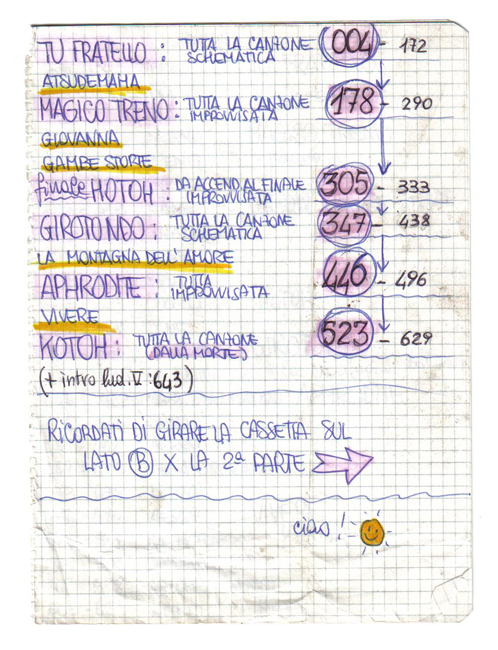 TU FRATELLO : TUTTA LA CANZONE SCHEMATICA 004 - 172
ATSUDEMAMA
MAGICO TRENO : TUTTA LA CANZONE IMPROVVISATA 178 - 290
GIOVANNA
GAMBE STORTE
finale HOTOH : DA ACCEND. AL FINALE IMPROVVISATA 305 - 333
GIROTONDO : TUTTA LA CANZONE SCHEMATICA 347 - 438
LA MONTAGNA DELL'AMORE
APHRODITE : TUTTA IMPROVVISATA 446 - 496
VIVERE
KOTOH : TUTTA LA CANZONE (DALLA MORTE) 523 - 629
(+ intro lud. V : 643)
RICORDATI DI GIRARE LA CASSETTA SUL
LATO B X LA 2ª PARTE
ciao !